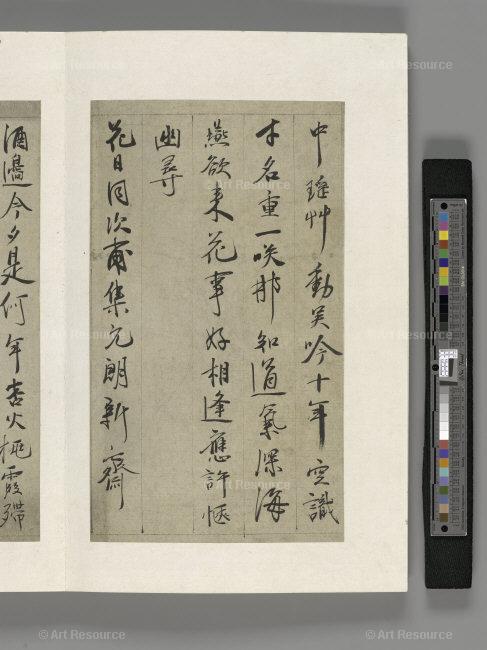 中瑶艸動吴吟十年空識
才名重一咲那知道氣深海
燕欲来花事好相逢應許惬
幽尋
花日同次甫集元朗新齋
酒邊今夕是何年杏火桃霞
© Art Resource
© Art Resource
© Art Resource
© Art Resource
© Art Resource
© Art Resource
© Art Resource